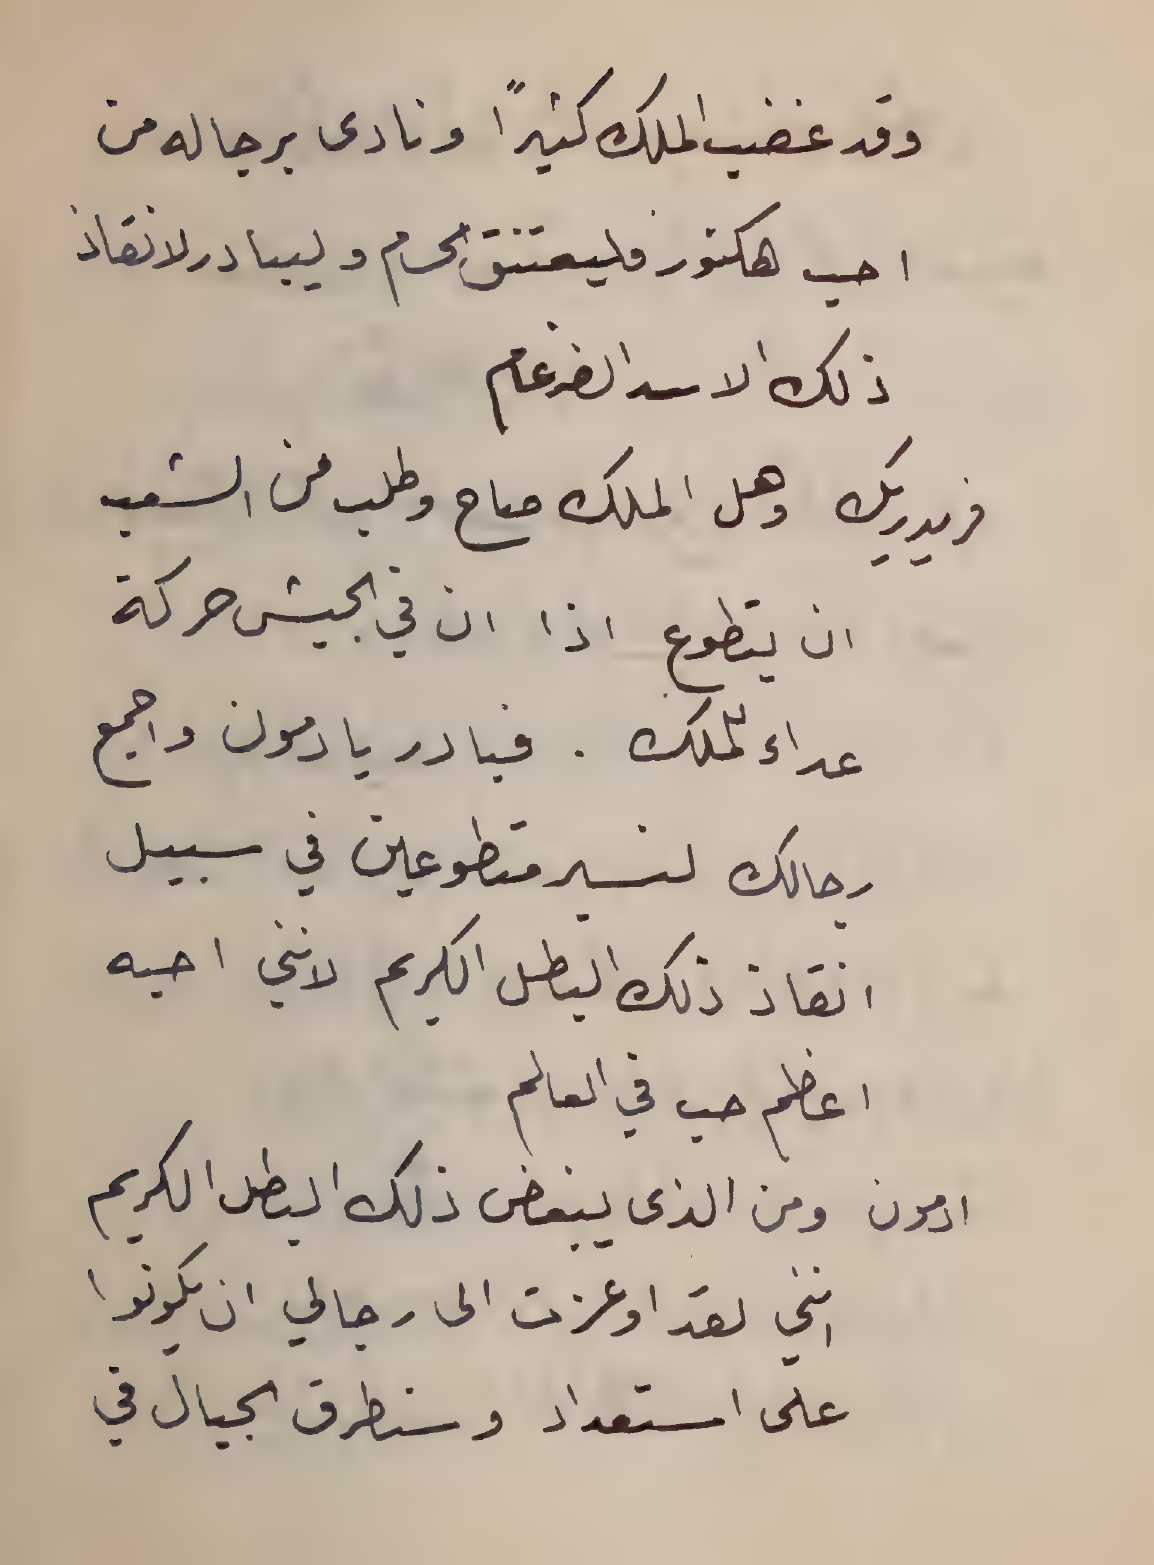 وقد غضب الملك كثيرًا ونادى برجاله من
احب هكتور فليعتنق الحرم وليبادر لانقاذ
ذلك الاسد الضرغام
فريدريك وهل الملك صاح وطلب من الشعب
ان يتطوع اذا ان في الجيش حركة
عداء للملك . فبادر يا دمون واجمع
رجالك لنسير متطوعين في سبيل
انقاذ ذلك البطل الكريم لانني احبه
اعظم حب في العالم
ادمون ومن الذى يبغض ذلك البطل الكريم
انني لقد اوعزت الى رجالي ان يكونوا
على استعداد وسنطرق الجبال في